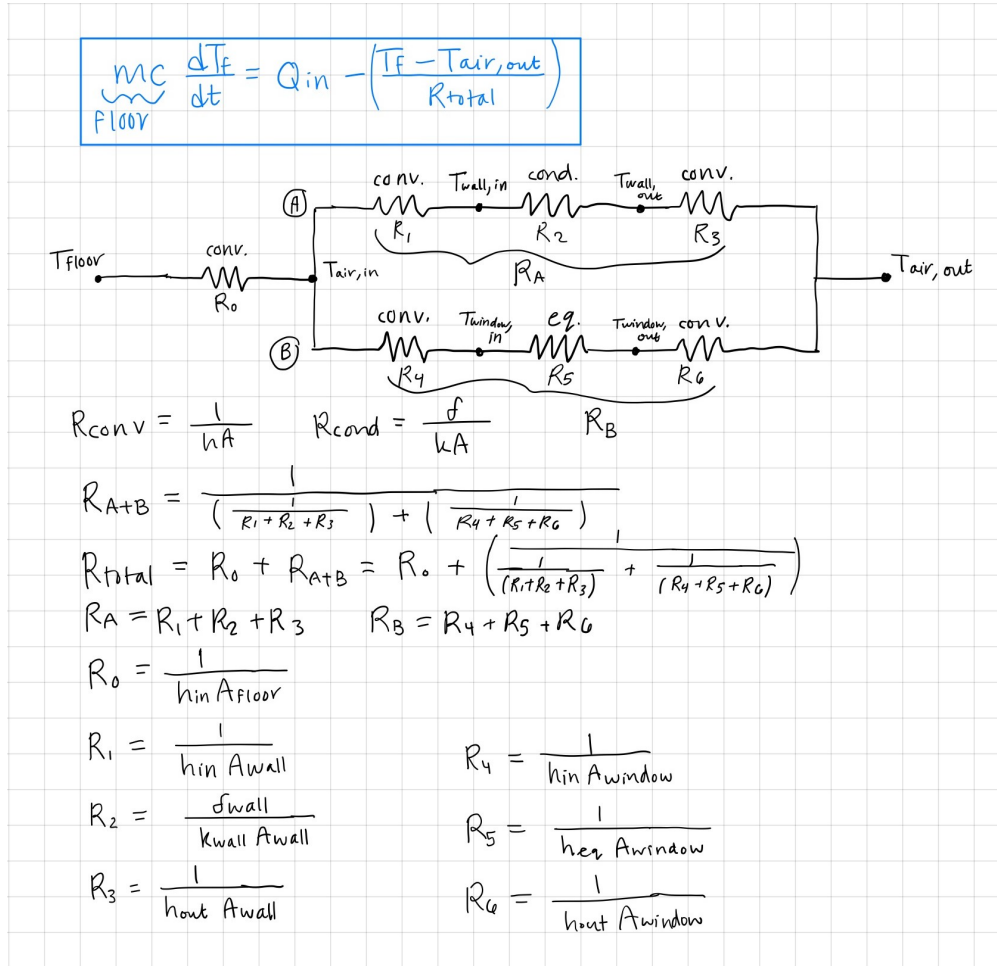 mc dT_F/dt = Qin − ((T_F − Tair,out)/Rtotal)
floor
A conv. Twall,in cond. Twall,out conv.
R₁ R₂ R₃
Tfloor conv. Tair,in R_A Tair,out
R₀
B conv. Twindow,in eq. Twindow,out conv.
R₄ R₅ R₆
R_B
Rconv = 1/hA Rcond = δ/kA
R_A+B = 1/((1/(R₁+R₂+R₃)) + (1/(R₄+R₅+R₆)))
Rtotal = R₀ + R_A+B = R₀ + (1/(1/(R₁+R₂+R₃) + 1/(R₄+R₅+R₆)))
R_A = R₁+R₂+R₃ R_B = R₄+R₅+R₆
R₀ = 1/(hin Afloor)
R₁ = 1/(hin Awall) R₄ = 1/(hin Awindow)
R₂ = δwall/(kwall Awall) R₅ = 1/(heq Awindow)
R₃ = 1/(hout Awall) R₆ = 1/(hout Awindow)